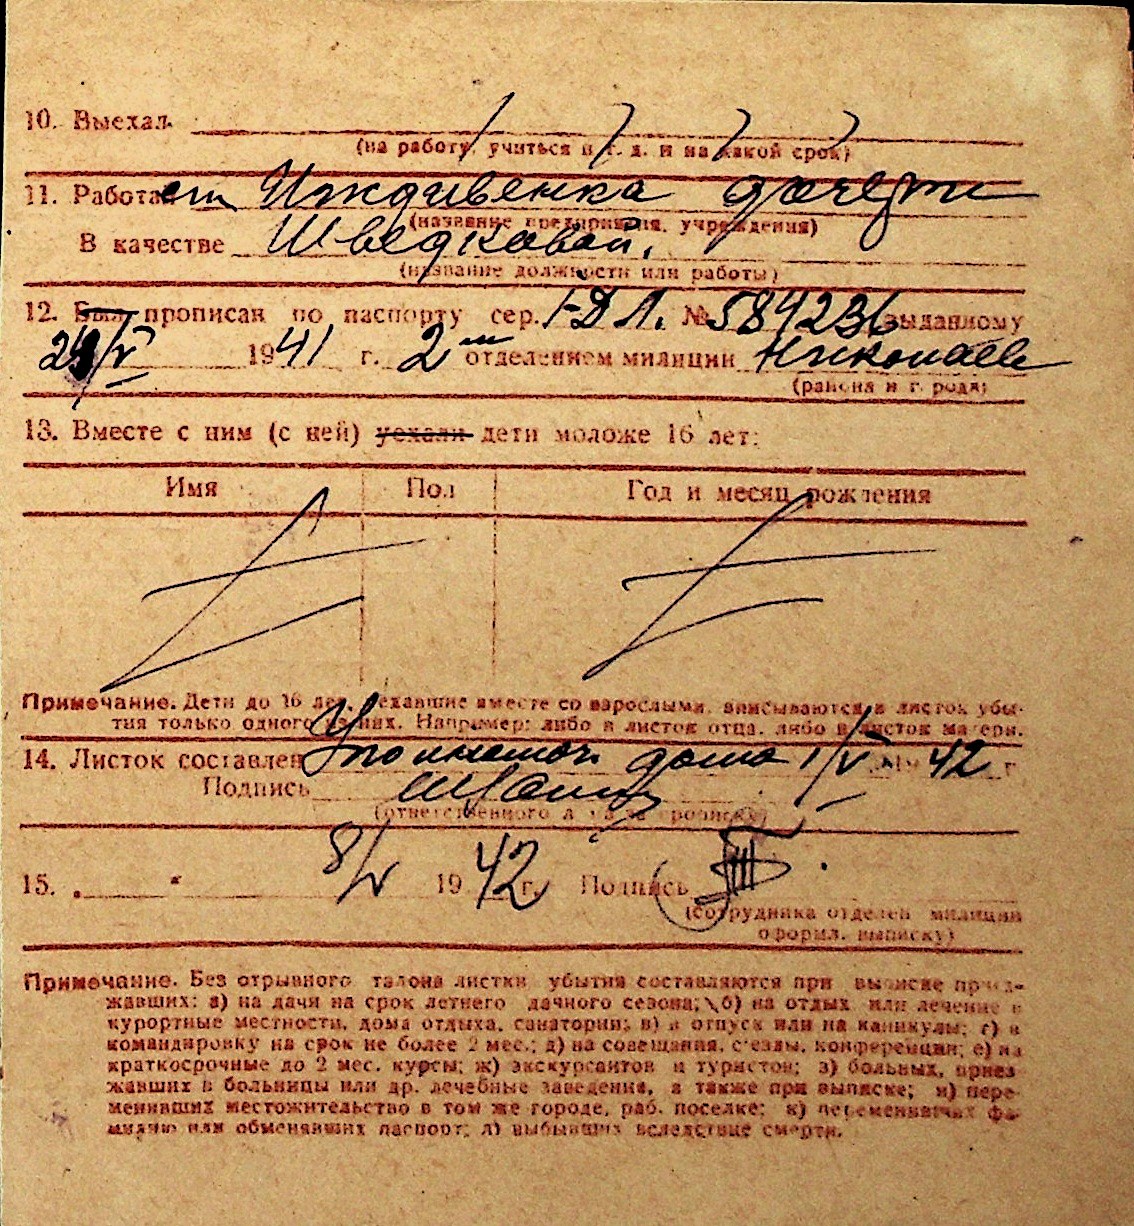 10. Выехал
(на работу, учиться и т. д. и на какой срок)
11. Работает Иждивенка дочери
(название предприятия, учреждения)
В качестве Шведковой.
(название должности или работы)
12. Был прописан по паспорту сер. I-ДЛ. № 584236 выданному
/V 1941 г. 2 отделением милиции Николаев
(района и города)
13. Вместе с ним (с ней) уехали дети моложе 16 лет:
Имя Пол Год и месяц рождения
Примечание. Дети до 16 лет, уехавшие вместе со взрослыми, вписываются в листок убы-
тия только одного из них. Например: либо в листок отца, либо в листок матери.
14. Листок составлен дома 1/V 1942 г.
Подпись
(ответственного лица за прописку)
8/V 1942 г. 
15. „ “ Подпись
(сотрудника отделен. милиции
оформл. выписку)
Примечание. Без отрывного талона листки убытия составляются при выписке приез-
жавших: а) на дачи на срок летнего дачного сезона; б) на отдых или лечение в
курортные местности, дома отдыха, санатории; в) в отпуск или на каникулы; г) в
командировку на срок не более 2 мес.; д) на совещания, съезды, конференции; е) на
краткосрочные до 2 мес. курсы; ж) экскурсантов и туристов; з) больных, приез-
жавших в больницы или др. лечебные заведения, а также при выписке; и) пере-
менивших местожительство в том же городе, раб. поселке; к) переменивших фа-
милию или обменявших паспорт; л) выбывших вследствие смерти.